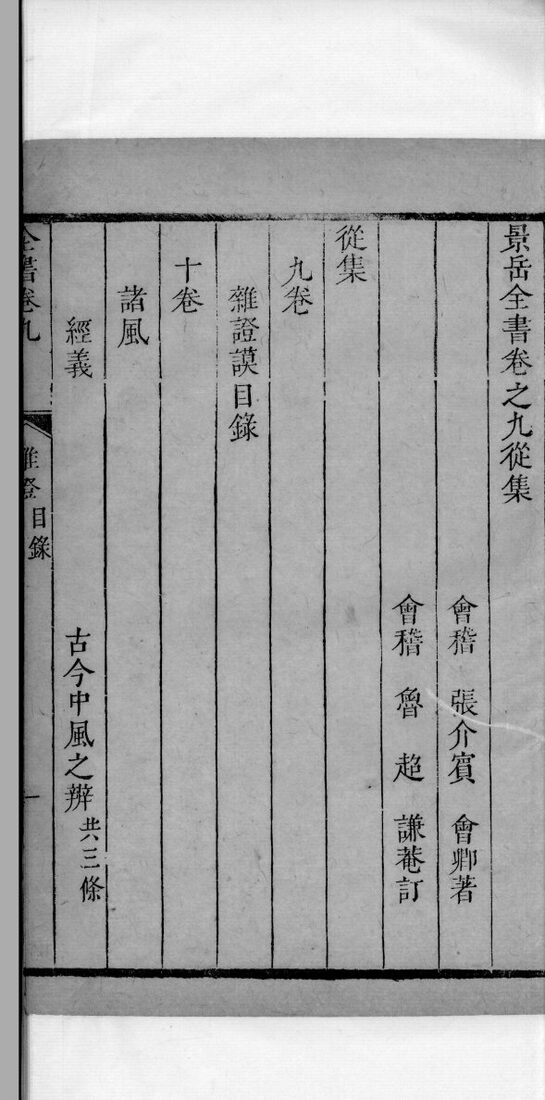 景岳全書卷之九從集
會稽 張介賓 會卿著
會稽 魯超 謙菴訂
從集
九卷
雜證謨目錄
十卷
諸風
經義 古今中風之辨共三條
全書卷九 雜證目錄 一